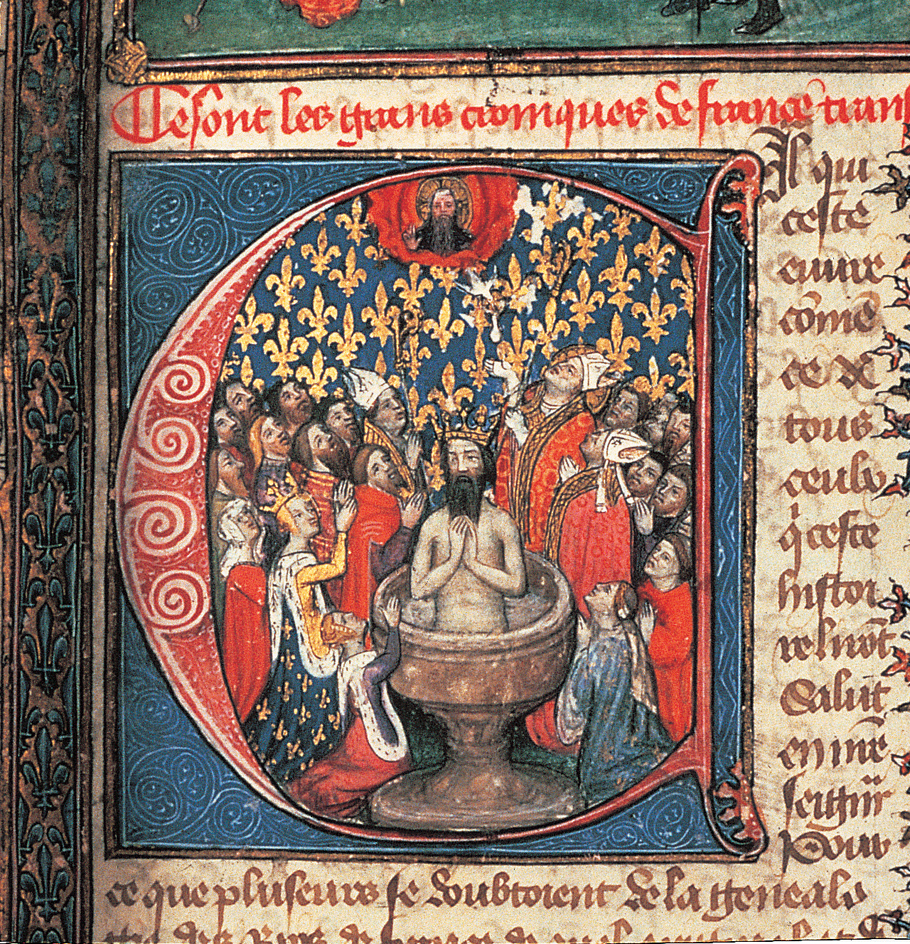 Ce sont les grans croniques de france trans
Il qui
ceste
euure
cōmē
ce a
tous
ceulx
q̓ ceste
histoi
re lirōt
Salut
en nr̄e
seignr̄
Pour
ce que pluseurs se doubtoient de la genealo
gie des Roys de france de quel